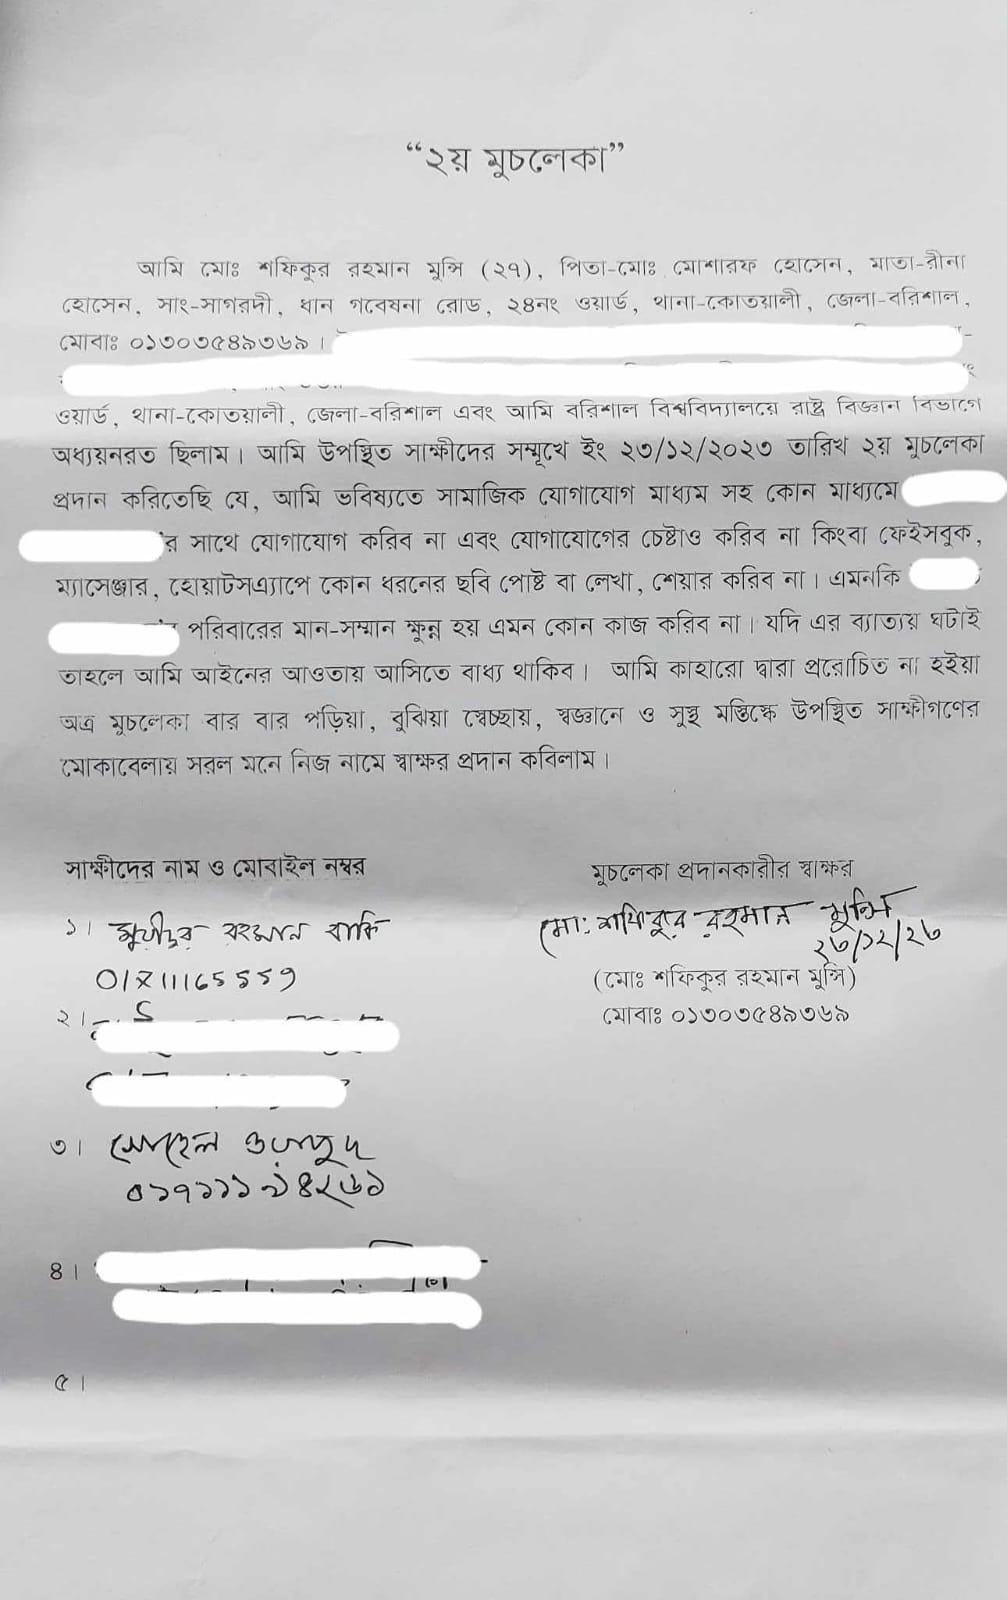 “২য় মুচলেকা”
আমি মোঃ শফিকুর রহমান মুন্সি (২৭), পিতা-মোঃ মোশারফ হোসেন, মাতা-রীনা
হোসেন, সাং-সাগরদী, ধান গবেষনা রোড, ২৪নং ওয়ার্ড, থানা-কোতয়ালী, জেলা-বরিশাল,
মোবাঃ ০১৩০৩৫৪৯৩৬৯।
ওয়ার্ড, থানা-কোতয়ালী, জেলা-বরিশাল এবং আমি বরিশাল বিশ্ববিদ্যালয়ে রাষ্ট্র বিজ্ঞান বিভাগে
অধ্যয়নরত ছিলাম। আমি উপস্থিত সাক্ষীদের সম্মূখে ইং ২৩/১২/২০২৩ তারিখ ২য় মুচলেকা
প্রদান করিতেছি যে, আমি ভবিষ্যতে সামাজিক যোগাযোগ মাধ্যম সহ কোন মাধ্যমে
র সাথে যোগাযোগ করিব না এবং যোগাযোগের চেষ্টাও করিব না কিংবা ফেইসবুক,
ম্যাসেঞ্জার, হোয়াটসএ্যাপে কোন ধরনের ছবি পোষ্ট বা লেখা, শেয়ার করিব না। এমনকি
পরিবারের মান-সম্মান ক্ষুন্ন হয় এমন কোন কাজ করিব না। যদি এর ব্যাত্যয় ঘটাই
তাহলে আমি আইনের আওতায় আসিতে বাধ্য থাকিব। আমি কাহারো দ্বারা প্ররোচিত না হইয়া
অত্র মুচলেকা বার বার পড়িয়া, বুঝিয়া স্বেচ্ছায়, স্বজ্ঞানে ও সুস্থ মস্তিস্কে উপস্থিত সাক্ষীগণের
মোকাবেলায় সরল মনে নিজ নামে স্বাক্ষর প্রদান কবিলাম।
সাক্ষীদের নাম ও মোবাইল নম্বর
মুচলেকা প্রদানকারীর স্বাক্ষর
১। রহমান বাকি
01711165559
মো: শফিকুর রহমান মুন্সি
২৩/১২/২৩
(মোঃ শফিকুর রহমান মুন্সি)
মোবাঃ ০১৩০৩৫৪৯৩৬৯
২।
৩। সোহেল
০১৭১১১৯৪২৬১
৪।
৫।